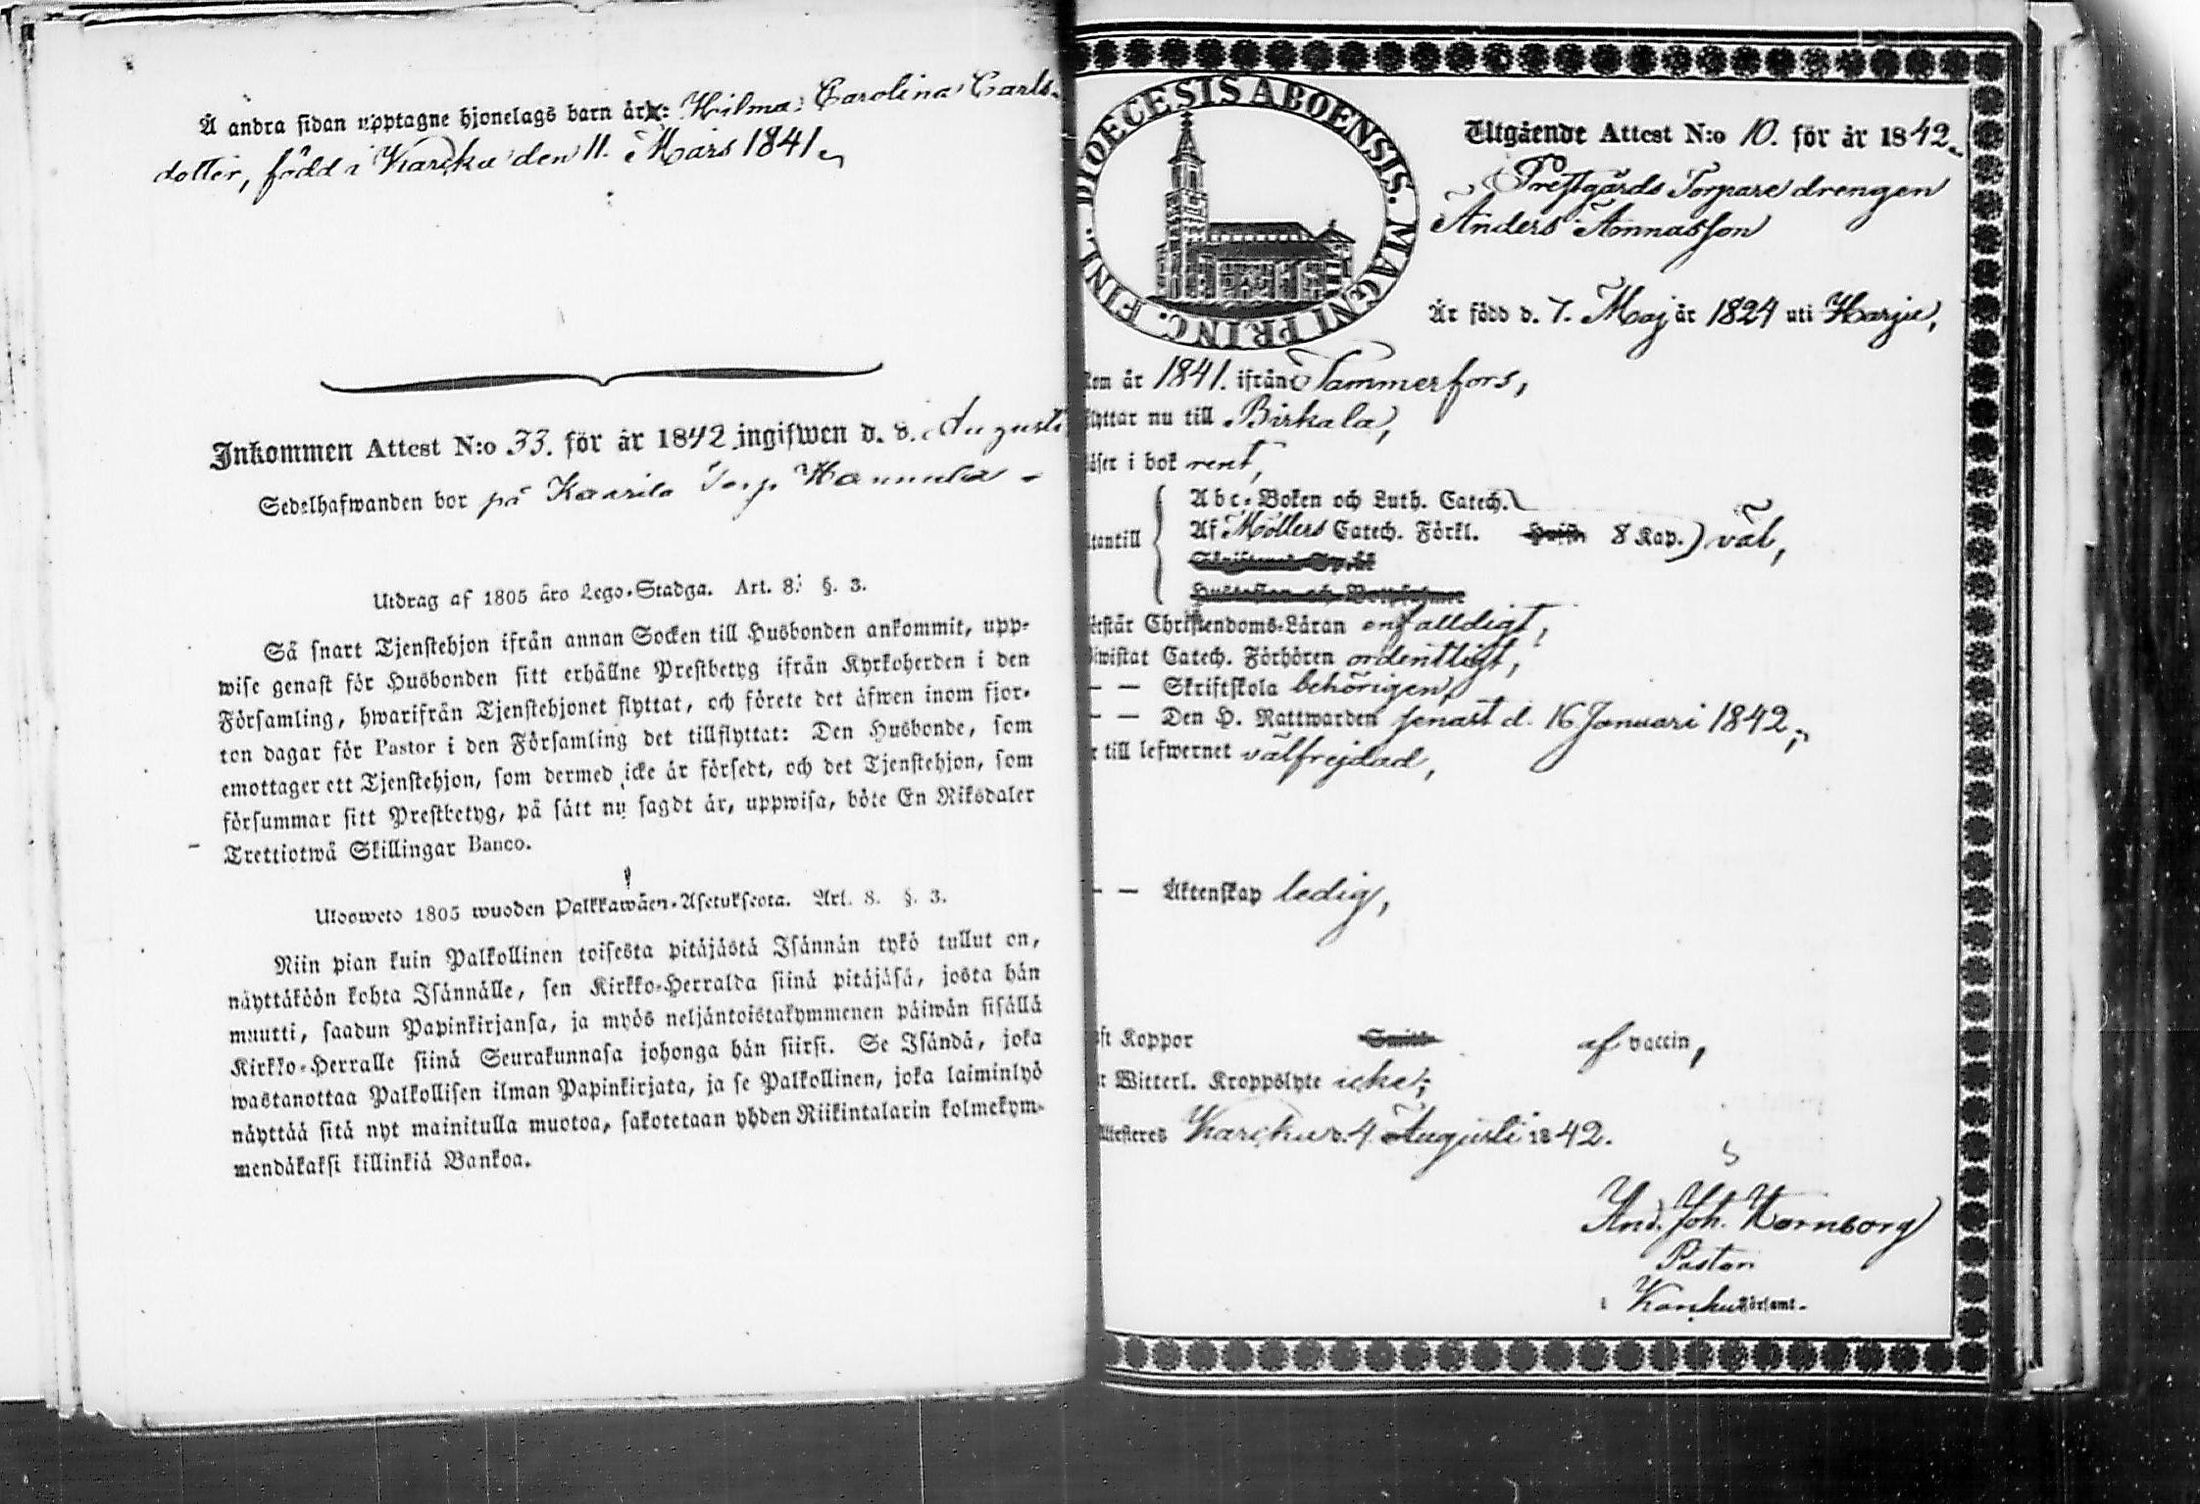 Å andra sidan upptagne hjonelags barn är: Hilma Carolina Carls-
dotter, född i Karcku den 11. Mars 1841.
Inkommen Attest N:o 33. för år 1842 ingifwen d. 8. Augusti
Sedelhafwanden bor på Kaarila Torp
Utdrag af 1805 åro Lego-Stadga. Art. 8. §. 3.
Så snart Tjenstehjon ifrån annan Socken till Husbonden ankommit, upp-
wise genast för Husbonden sitt erhållne Prestbetyg ifrån Kyrkoherden i den
Församling, hwarifrån Tjenstehjonet flyttat, och förete det äfwen inom fjor-
ton dagar för Pastor i den Församling det tillflyttat: Den Husbonde, som
emottager ett Tjenstehjon, som dermed icke är försedt, och det Tjenstehjon, som
försummar sitt Prestbetyg, på sätt nu sagdt är, uppwisa, böte En Riksdaler
Trettiotwå Skillingar Banco.
Ulosweto 1805 wuoden Palkkawäen-Asetuksesta. Art. 8. §. 3.
Niin pian kuin Palkollinen toisesta pitäjästä Isännän tykö tullut on,
näyttäköön kohta Isännälle, sen Kirkko-Herralda siinä pitäjäsä, josta hän
muutti, saadun Papinkirjansa, ja myös neljäntoistakymmenen päiwän sisällä
Kirkko-Herralle siinä Seurakunnasa johonga hän siirsi. Se Isändä, joka
wastanottaa Palkollisen ilman Papinkirjata, ja se Palkollinen, joka laiminlyö
näyttää sitä nyt mainitulla muotoa, sakotetaan yhden Riikintalarin kolmekym-
mendäkaksi killinkiä Bankoa.
DIOECESIS ABOENSIS. MAGNI PRINC. FINL.
Utgående Attest N:o 10. för år 1842
Prestgårds Torpare drengen
Anders Annasson
Är född d. 7. Maj år 1824 uti Harju,
kom år 1841. ifrån Tammerfors,
flyttar nu till Birkala,
läser i bok rent,
Abc-Boken och Luth. Catech.
utantill Af Möllers Catech. Förkl. 8 Kap. väl,
förstår Christendoms-Läran enfalldigt,
Biwistat Catech. Förhören ordentligt,
— — Skriftskola behörigen,
— — Den H. Nattwarden senast d. 16 Januari 1842,
r till lefwernet välfrejdad,
— — Äktenskap ledig,
ft Koppor Smitt af vaccin,
r Witterl. Kroppslyte icke;
Attesteres Karcku d. 4 Augusti 1842.
And. Joh. Hornborg
Pastor
i Karcku Församl.